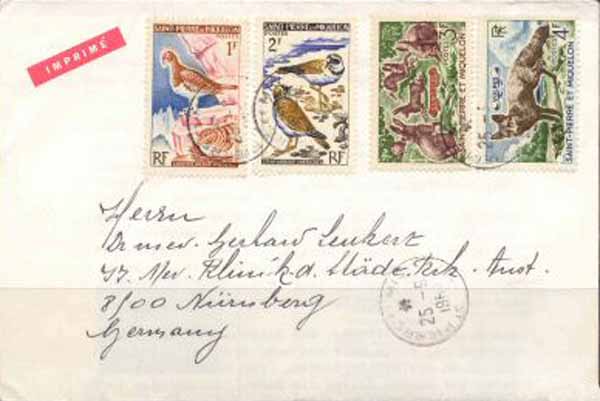 IMPRIMÉ
SAINT-PIERRE ET MIQUELON
1F
RF
SAINT-PIERRE ET MIQUELON
POSTES
2F
RF
3F
POSTES
ST PIERRE ET MIQUELON
RF
4F
POSTES
SAINT-PIERRE ET MIQUELON
Herrn
Dr. med. Gerhard
Klinik d. Städt. Krk. Anst.
8500 Nürnberg
Germany
25 -5